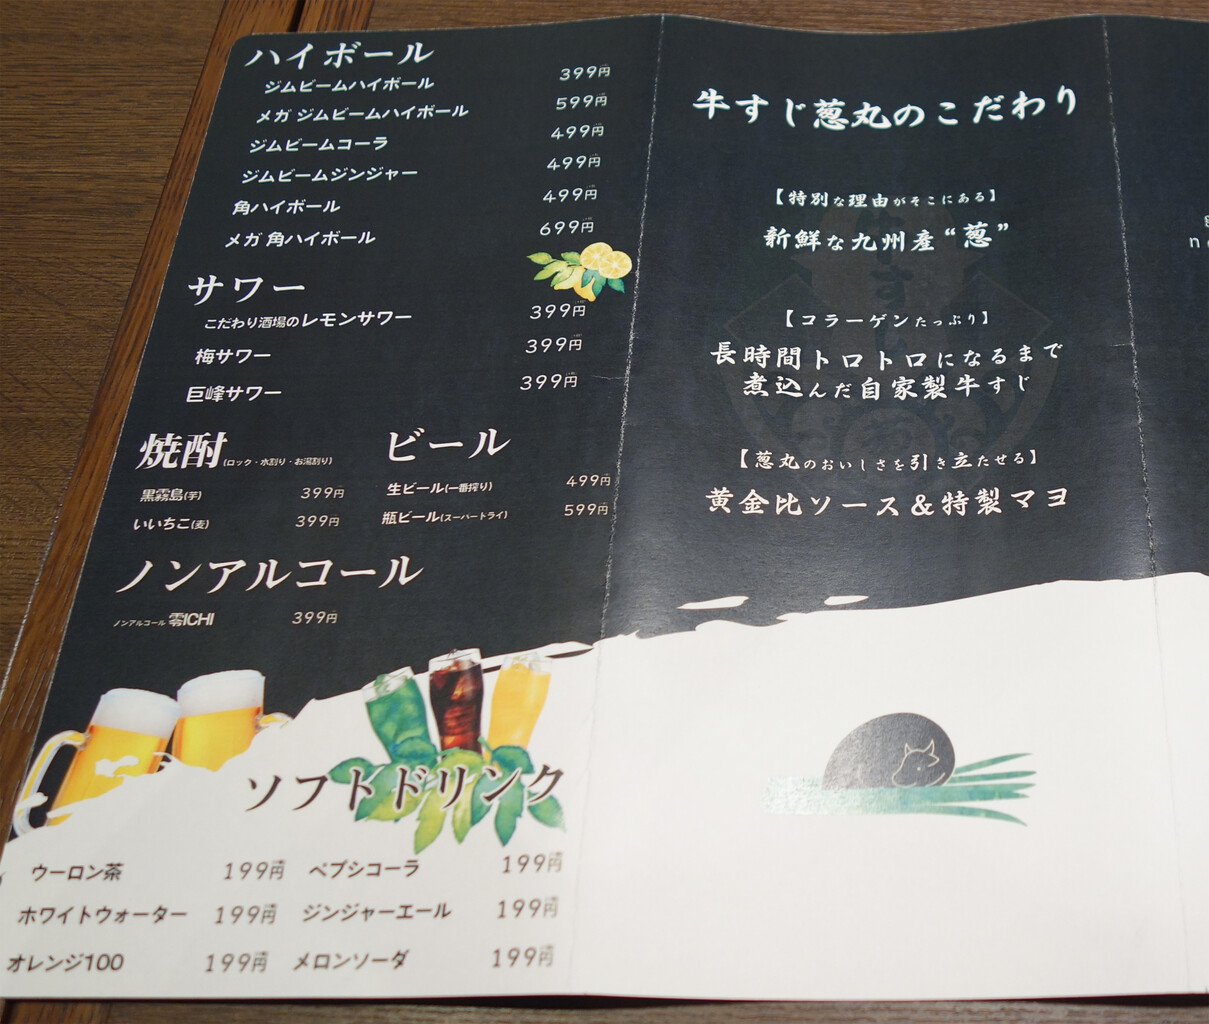 ハイボール
ジムビームハイボール 399円
メガ ジムビームハイボール 599円
ジムビームコーラ 499円
ジムビームジンジャー 499円
角ハイボール 499円
メガ 角ハイボール 699円
サワー
こだわり酒場のレモンサワー 399円
梅サワー 399円
巨峰サワー 399円
焼酎(ロック・水割り・お湯割り)
黒霧島(芋) 399円
いいちこ(麦) 399円
ビール
生ビール(一番搾り) 499円
瓶ビール(スーパードライ) 599円
ノンアルコール
ノンアルコール 零ICHI 399円
ソフトドリンク
ウーロン茶 199円 ペプシコーラ 199円
ホワイトウォーター 199円 ジンジャーエール 199円
オレンジ100 199円 メロンソーダ 199円
牛すじ葱丸のこだわり
【特別な理由がそこにある】
新鮮な九州産“葱”
【コラーゲンたっぷり】
長時間トロトロになるまで
煮込んだ自家製牛すじ
【葱丸のおいしさを引き立たせる】
黄金比ソース&特製マヨ